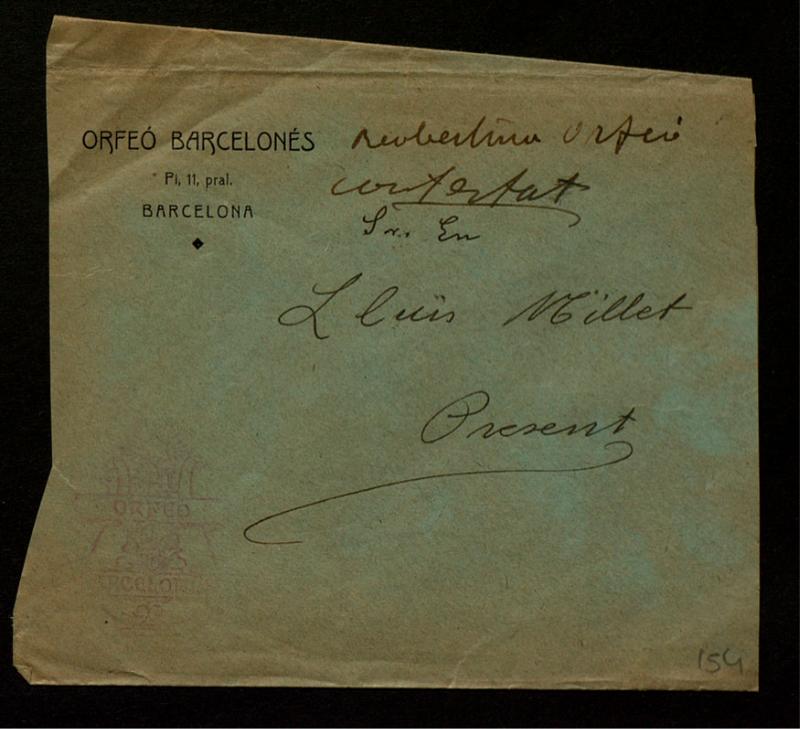 ORFEÓ BARCELONÉS
Pi, 11, pral.
BARCELONA
Orfeó
contestat
Sr. En
Lluïs Millet
Present
ORFEÓ
BARCELONÉS
154